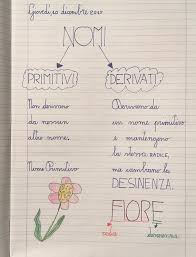 Giovedì, 10 dicembre 2015
NOMI
PRIMITIVI DERIVATI
Non derivano
da nessun
altro nome.
Nome Primitivo
Derivano da
un nome primitivo
e mantengono
la stessa RADICE,
ma cambiano la
DESINENZA.
FIORE
radice desinenza